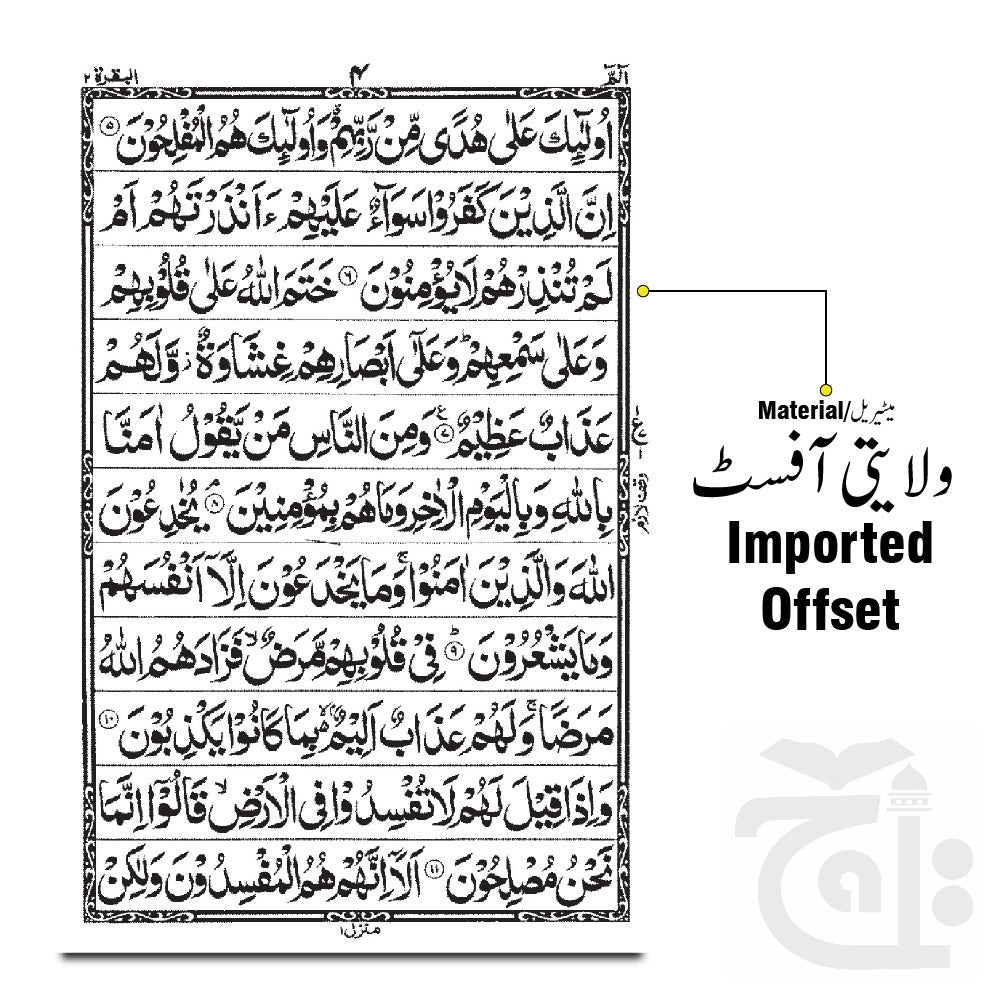 الٓمّٓ ۴ البقرة ۲
اُولٰٓئِكَ عَلٰى هُدًى مِّنْ رَّبِّهِمْ وَاُولٰٓئِكَ هُمُ الْمُفْلِحُوْنَ ۵
اِنَّ الَّذِيْنَ كَفَرُوْا سَوَآءٌ عَلَيْهِمْ ءَاَنْذَرْتَهُمْ اَمْ
لَمْ تُنْذِرْهُمْ لَا يُؤْمِنُوْنَ ۶ خَتَمَ اللّٰهُ عَلٰى قُلُوْبِهِمْ
وَعَلٰى سَمْعِهِمْ ؕ وَعَلٰٓى اَبْصَارِهِمْ غِشَاوَةٌ ز وَّلَهُمْ
عَذَابٌ عَظِيْمٌ ۷ ع وَمِنَ النَّاسِ مَنْ يَّقُوْلُ اٰمَنَّا
بِاللّٰهِ وَبِالْيَوْمِ الْاٰخِرِ وَمَا هُمْ بِمُؤْمِنِيْنَ ۘ ۸ يُخٰدِعُوْنَ
اللّٰهَ وَالَّذِيْنَ اٰمَنُوْا ۚ وَمَا يَخْدَعُوْنَ اِلَّآ اَنْفُسَهُمْ
وَمَا يَشْعُرُوْنَ ؕ ۹ فِيْ قُلُوْبِهِمْ مَّرَضٌ ۙ فَزَادَهُمُ اللّٰهُ
مَرَضًا ۚ وَلَهُمْ عَذَابٌ اَلِيْمٌ ۢ ۙ بِمَا كَانُوْا يَكْذِبُوْنَ ۱۰
وَاِذَا قِيْلَ لَهُمْ لَا تُفْسِدُوْا فِى الْاَرْضِ ۙ قَالُوْٓا اِنَّمَا
نَحْنُ مُصْلِحُوْنَ ۱۱ اَلَآ اِنَّهُمْ هُمُ الْمُفْسِدُوْنَ وَلٰكِنْ
منزل ۱
وقف لازم
Material/میٹیریل
ولایتی آفسٹ
Imported
Offset